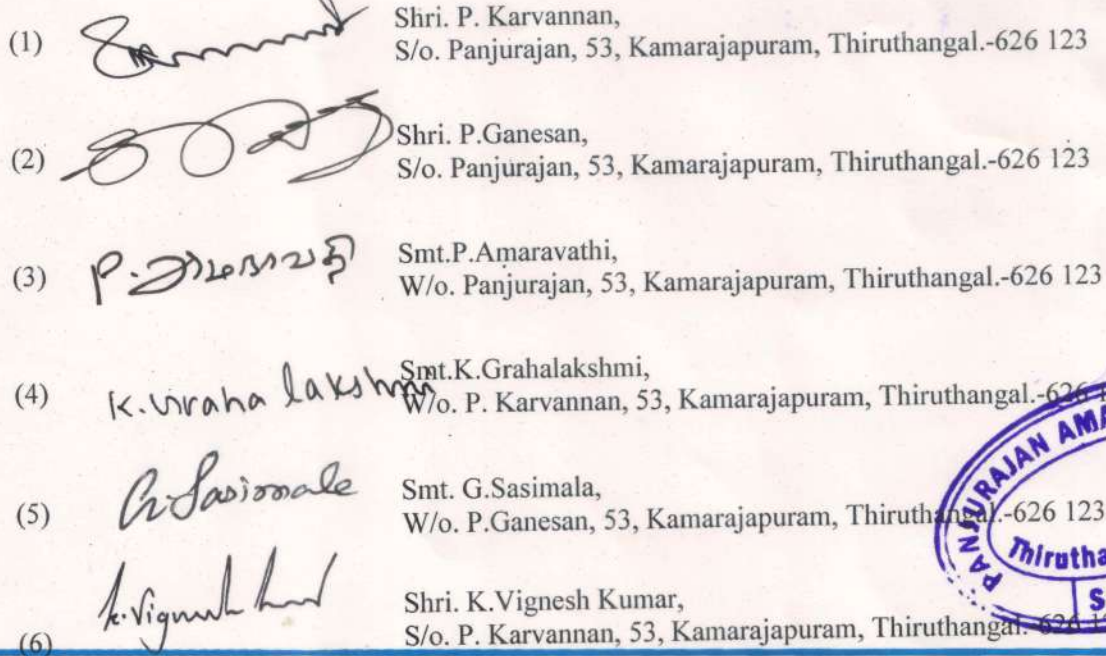 Shri. P. Karvannan,
(1) S/o. Panjurajan, 53, Kamarajapuram, Thiruthangal.-626 123
Shri. P.Ganesan,
(2) S/o. Panjurajan, 53, Kamarajapuram, Thiruthangal.-626 123
Smt.P.Amaravathi,
(3) P. அமராவதி W/o. Panjurajan, 53, Kamarajapuram, Thiruthangal.-626 123
Smt.K.Grahalakshmi,
(4) W/o. P. Karvannan, 53, Kamarajapuram, Thiruthangal.-626
(5) G. Sasimala Smt. G.Sasimala,
W/o. P.Ganesan, 53, Kamarajapuram, Thiruthangal.-626 123
K. Vignesh Kumar Shri. K.Vignesh Kumar,
(6) S/o. P. Karvannan, 53, Kamarajapuram, Thiruthangal.-626
PANJURAJAN AMA
Thirutha
S